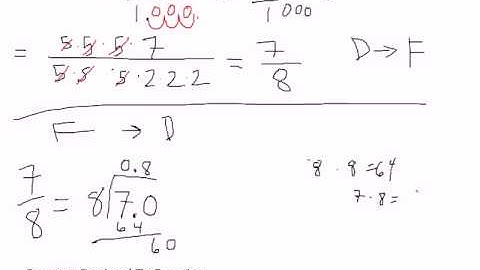 1.000 1000
= 5·5·5·7 / 5·5·5·2·2·2 = 7/8 D→F
F → D
0.8
7/8 = 8)7.0 8·8=64
64 7·8=
60